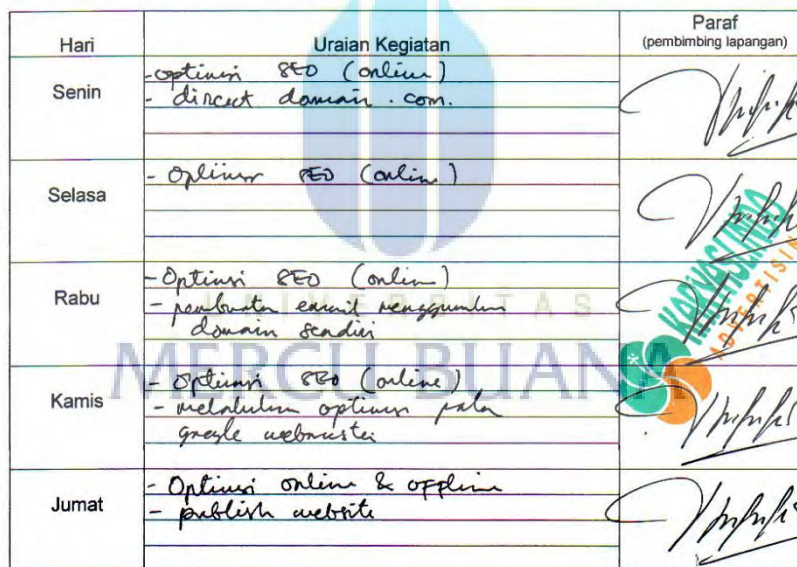 Hari Uraian Kegiatan Paraf
(pembimbing lapangan)
Senin
- optimasi SEO (online)
- direct domain .com.
Selasa
- Optimasi SEO (online)
Rabu
- Optimasi SEO (online)
- pembuatan email menggunakan
domain sendiri
UNIVERSITAS
MERCU BUANA
Kamis
- Optimasi SEO (online)
- melakukan optimasi pada
google webmaster
Jumat
- Optimasi online & offline
- publish website
KARYASLINDO
ADVERTISING